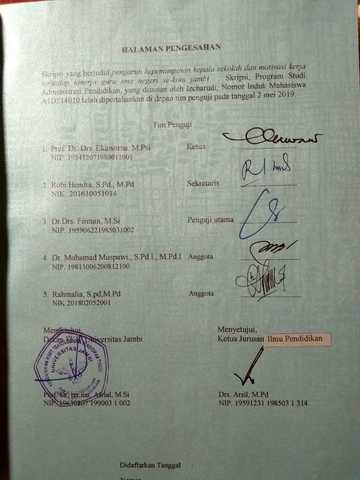 HALAMAN PENGESAHAN
Skripsi yang berjudul pengaruh kepemimpinan kepala sekolah dan motivasi kerja
terhadap kinerja guru sma negeri se-kota jambi Skripsi, Program Studi
Administrasi Pendidikan, yang disusun oleh Izcharudi, Nomor Induk Mahasiswa
A1D514010 telah dipertahankan di depan tim penguji pada tanggal 2 mei 2019
Tim Penguji
1. Prof. Dr. Drs. Ekawarna, M.Psi Ketua
NIP.
2. Robi Hendra, S.Pd., M.Pd Sekretaris
NIK. 201610051014
3. Dr.Drs. Firman, M.Si Penguji utama
NIP. 195906221985031002
4. Dr. Mohamad Muspawi., S.Pd.I., M.Pd.I Anggota
NIP. 19811006200812100
5. Rahmalia, S.pd,M.Pd Anggota
NIK.201802052001
Mengetahui Menyetujui,
Dekan Universitas Jambi Ketua Jurusan Ilmu Pendidikan
UNIVERSITAS JAMBI
Asrial, M.Si Drs. Arsil, M.Pd
199003 1 002 NIP. 19591231 198503 1 314
Didaftarkan Tanggal
Nomor